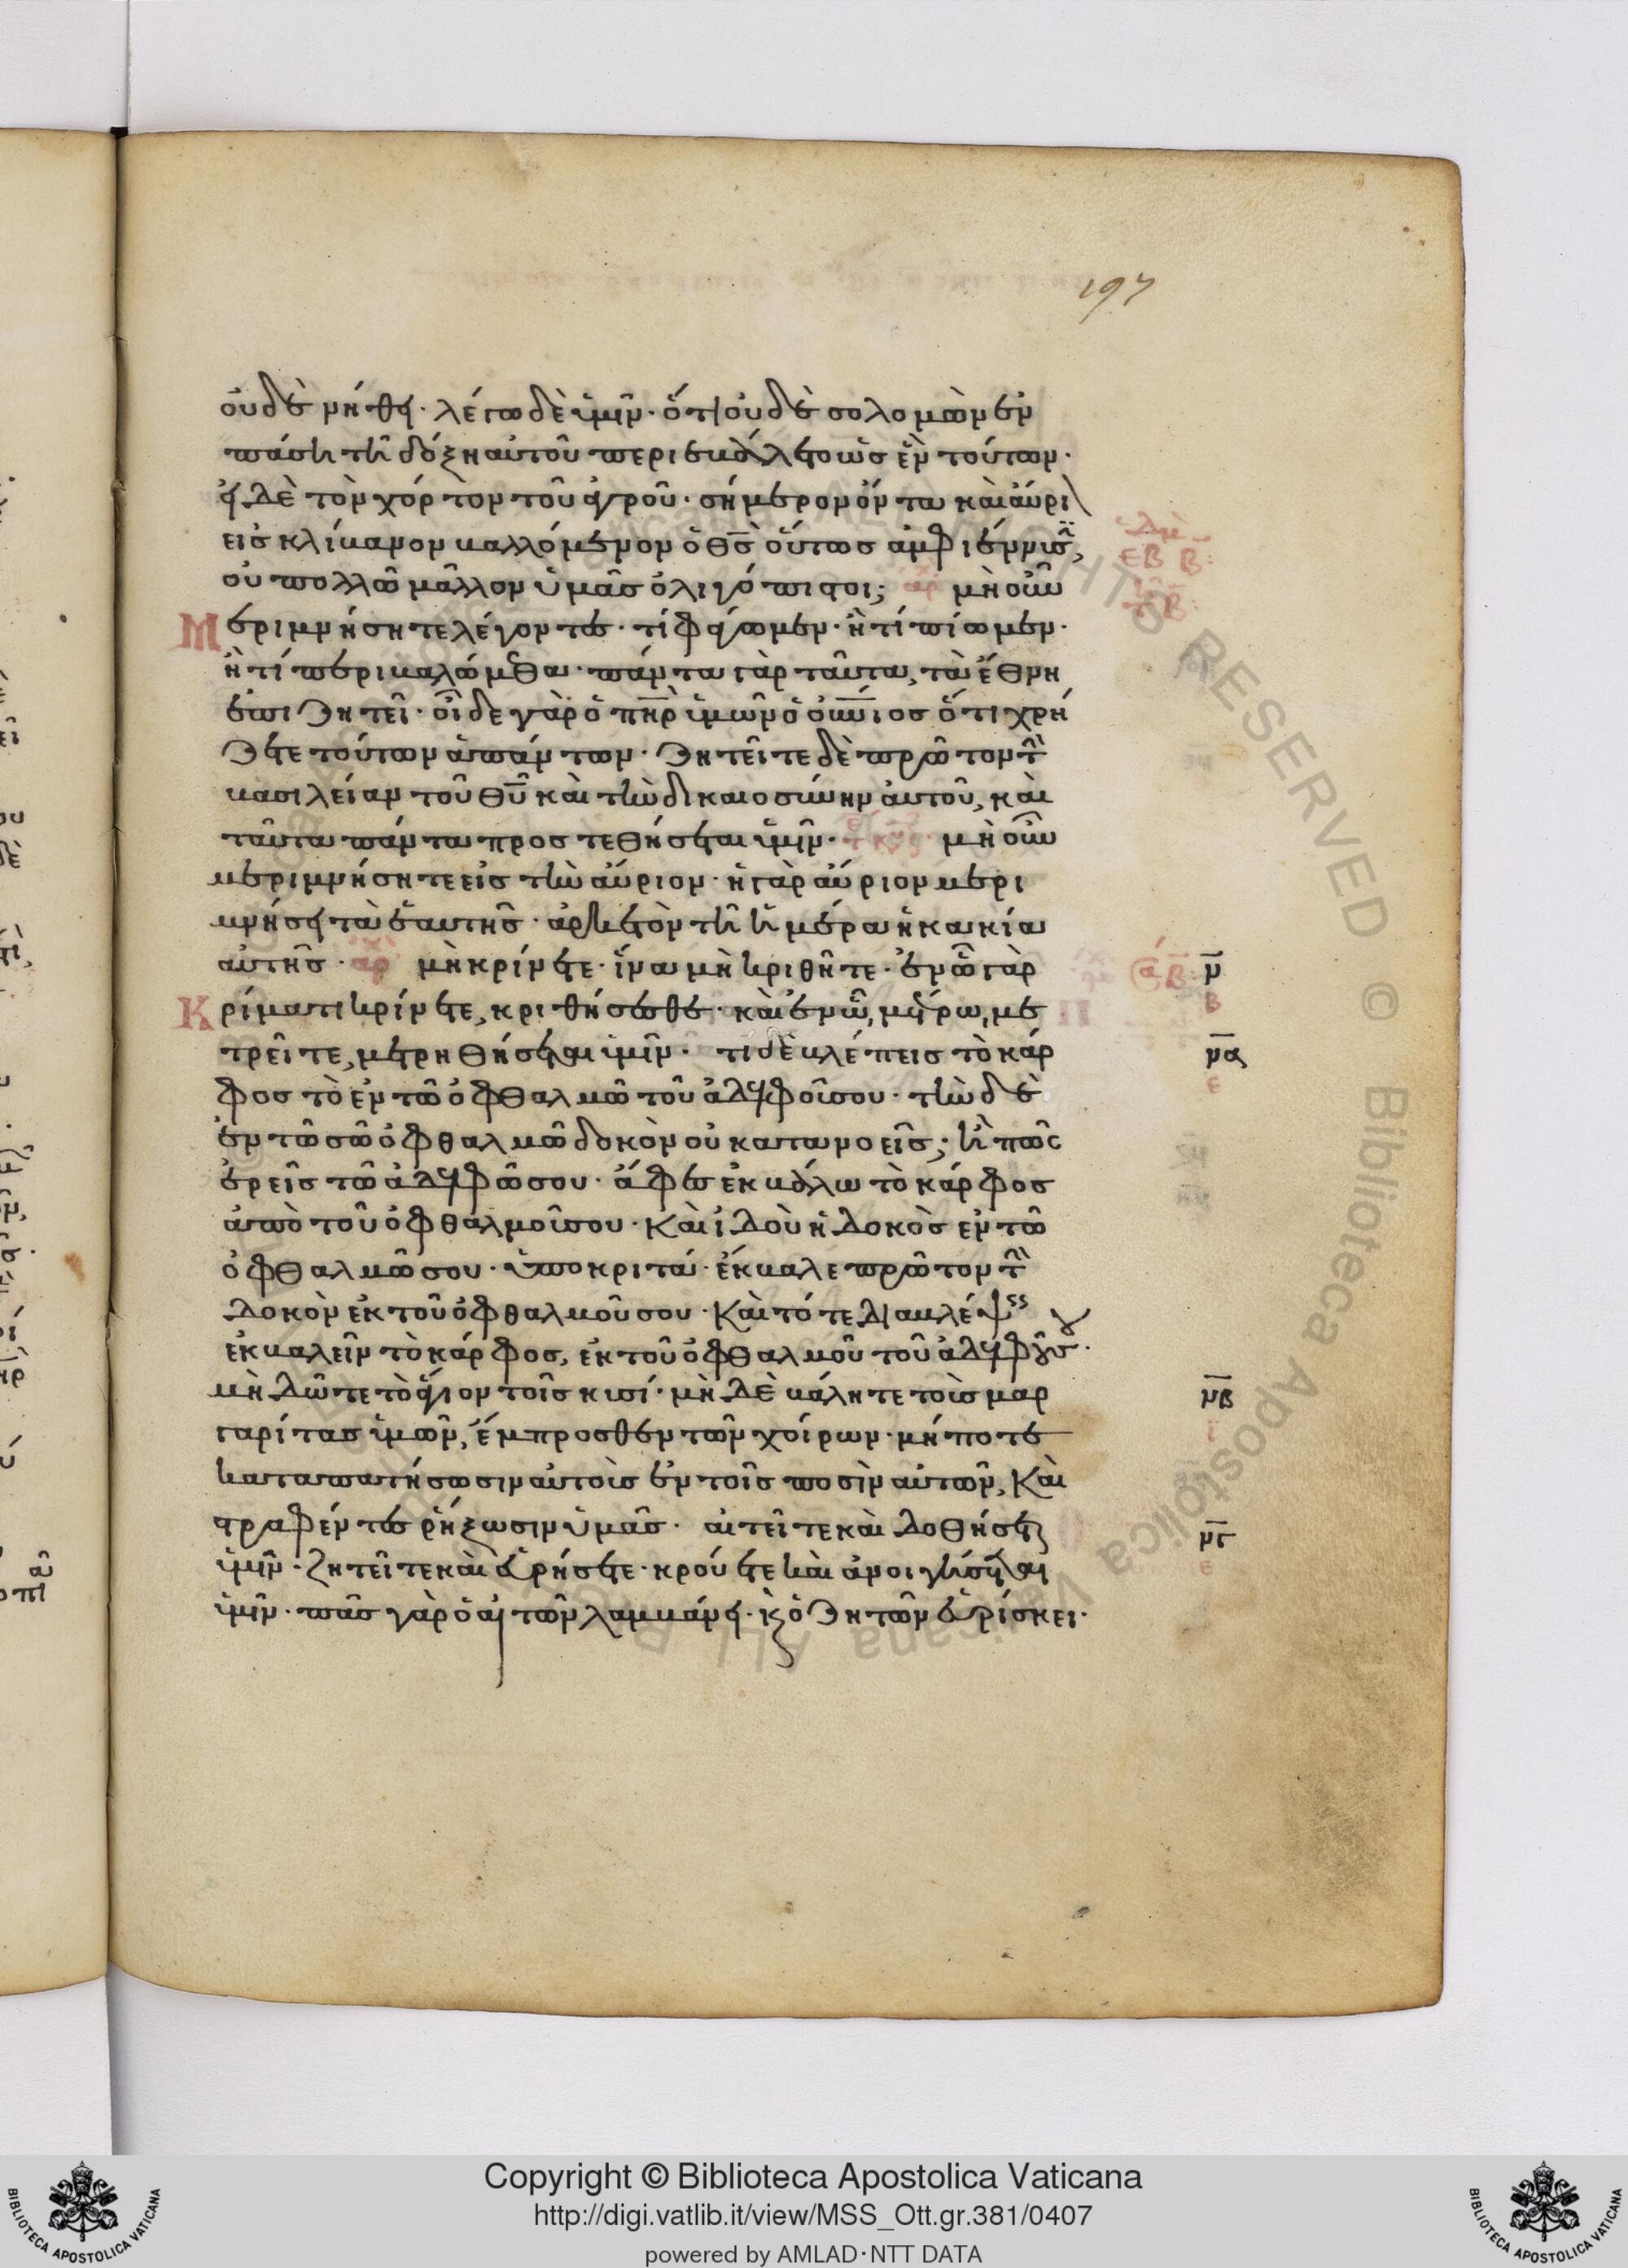 197
οὐδὲ νήθει· λέγω δὲ ὑμῖν· ὅτι οὐδὲ σολομὼν ἐν
πάσῃ τῇ δόξῃ αὐτοῦ περιεβάλετο ὡς ἓν τούτων·
εἰ δὲ τὸν χόρτον τοῦ ἀγροῦ· σήμερον ὄντα καὶ αὔρι
εἰς κλίβανον βαλλόμενον ὁ θς οὕτως ἀμφιέννυσ,
οὐ πολλῶ μᾶλλον ὑμᾶς ὀλιγόπιστοι; αρχ μὴ οὖν
Μεριμνήσητε λέγοντες· τί φάγωμεν· ἢ τί πίωμεν·
ἢ τί περιβαλώμεθα· πάντα γὰρ ταῦτα, τὰ ἔθνη
ἐπιζητεῖ· οἶδε γὰρ ὁ πηρ ὑμῶν ὁ οὐνιος ὅτι χρή
ζετε τούτων ἁπάντων· ζητεῖτε δὲ πρῶτον τ
βασιλείαν τοῦ θυ καὶ τὴν δικαιοσύνην αὐτοῦ, καὶ
ταῦτα πάντα προστεθήσεται ὑμῖν· μὴ οὖν
μεριμνήσητε εἰς τὴν αὔριον· ἡ γὰρ αὔριον μερι
μνήσει τὰ ἑαυτῆς· ἀρκετὸν τῇ ἡμέρα ἡ κακία
αὐτῆς· αρχ μὴ κρίνετε· ἵνα μὴ κριθῆτε· ἐν ᾧ γὰρ ν
Κρίματι κρίνετε, κριθήσεσθε· καὶ ἐν ᾧ, μέτρω, με β
τρεῖτε, μετρηθήσεται ὑμῖν· τί δὲ βλέπεις τὸ κάρ να
φος τὸ ἐν τῶ ὀφθαλμῶ τοῦ ἀδελφοῦ σου· τὴν δὲ ε
ἐν τῶ σῶ ὀφθαλμῶ δοκὸν οὐ κατανοεῖς; ἢ πῶς
ἐρεῖς τῶ ἀδελφῶ σου· ἄφες ἐκβάλω τὸ κάρφος
ἀπὸ τοῦ ὀφθαλμοῦ σου· Καὶ ἰδοὺ ἡ δοκὸς ἐν τῶ
ὀφθαλμῶ σου· ὑποκριτά· ἔκβαλε πρῶτον τ
δοκὸν ἐκ τοῦ ὀφθαλμοῦ σου· Καὶ τότε διαβλέψεις
ἐκβαλεῖν τὸ κάρφος, ἐκ τοῦ ὀφθαλμοῦ τοῦ ἀδελφοῦ σου·
μὴ δῶτε τὸ ἅγιον τοῖς κυσί· μὴ δὲ βάλητε τοὺς μαρ νβ
γαρίτας ὑμῶν, ἔμπροσθεν τῶν χοίρων· μήποτε
καταπατήσωσιν αὐτοὺς ἐν τοῖς ποσὶν αὐτῶν, Καὶ
στραφέντες ῥήξωσιν ὑμᾶς· αἰτεῖτε καὶ δοθήσεται νγ
ὑμῖν· ζητεῖτε καὶ εὑρήσετε· κρούετε καὶ ἀνοιγήσεται ε
ὑμῖν· πᾶς γὰρ ὁ αἰτῶν λαμβάνει· κ ὁ ζητῶν εὑρίσκει·
Copyright © Biblioteca Apostolica Vaticana
http://digi.vatlib.it/view/MSS_Ott.gr.381/0407
powered by AMLAD·NTT DATA